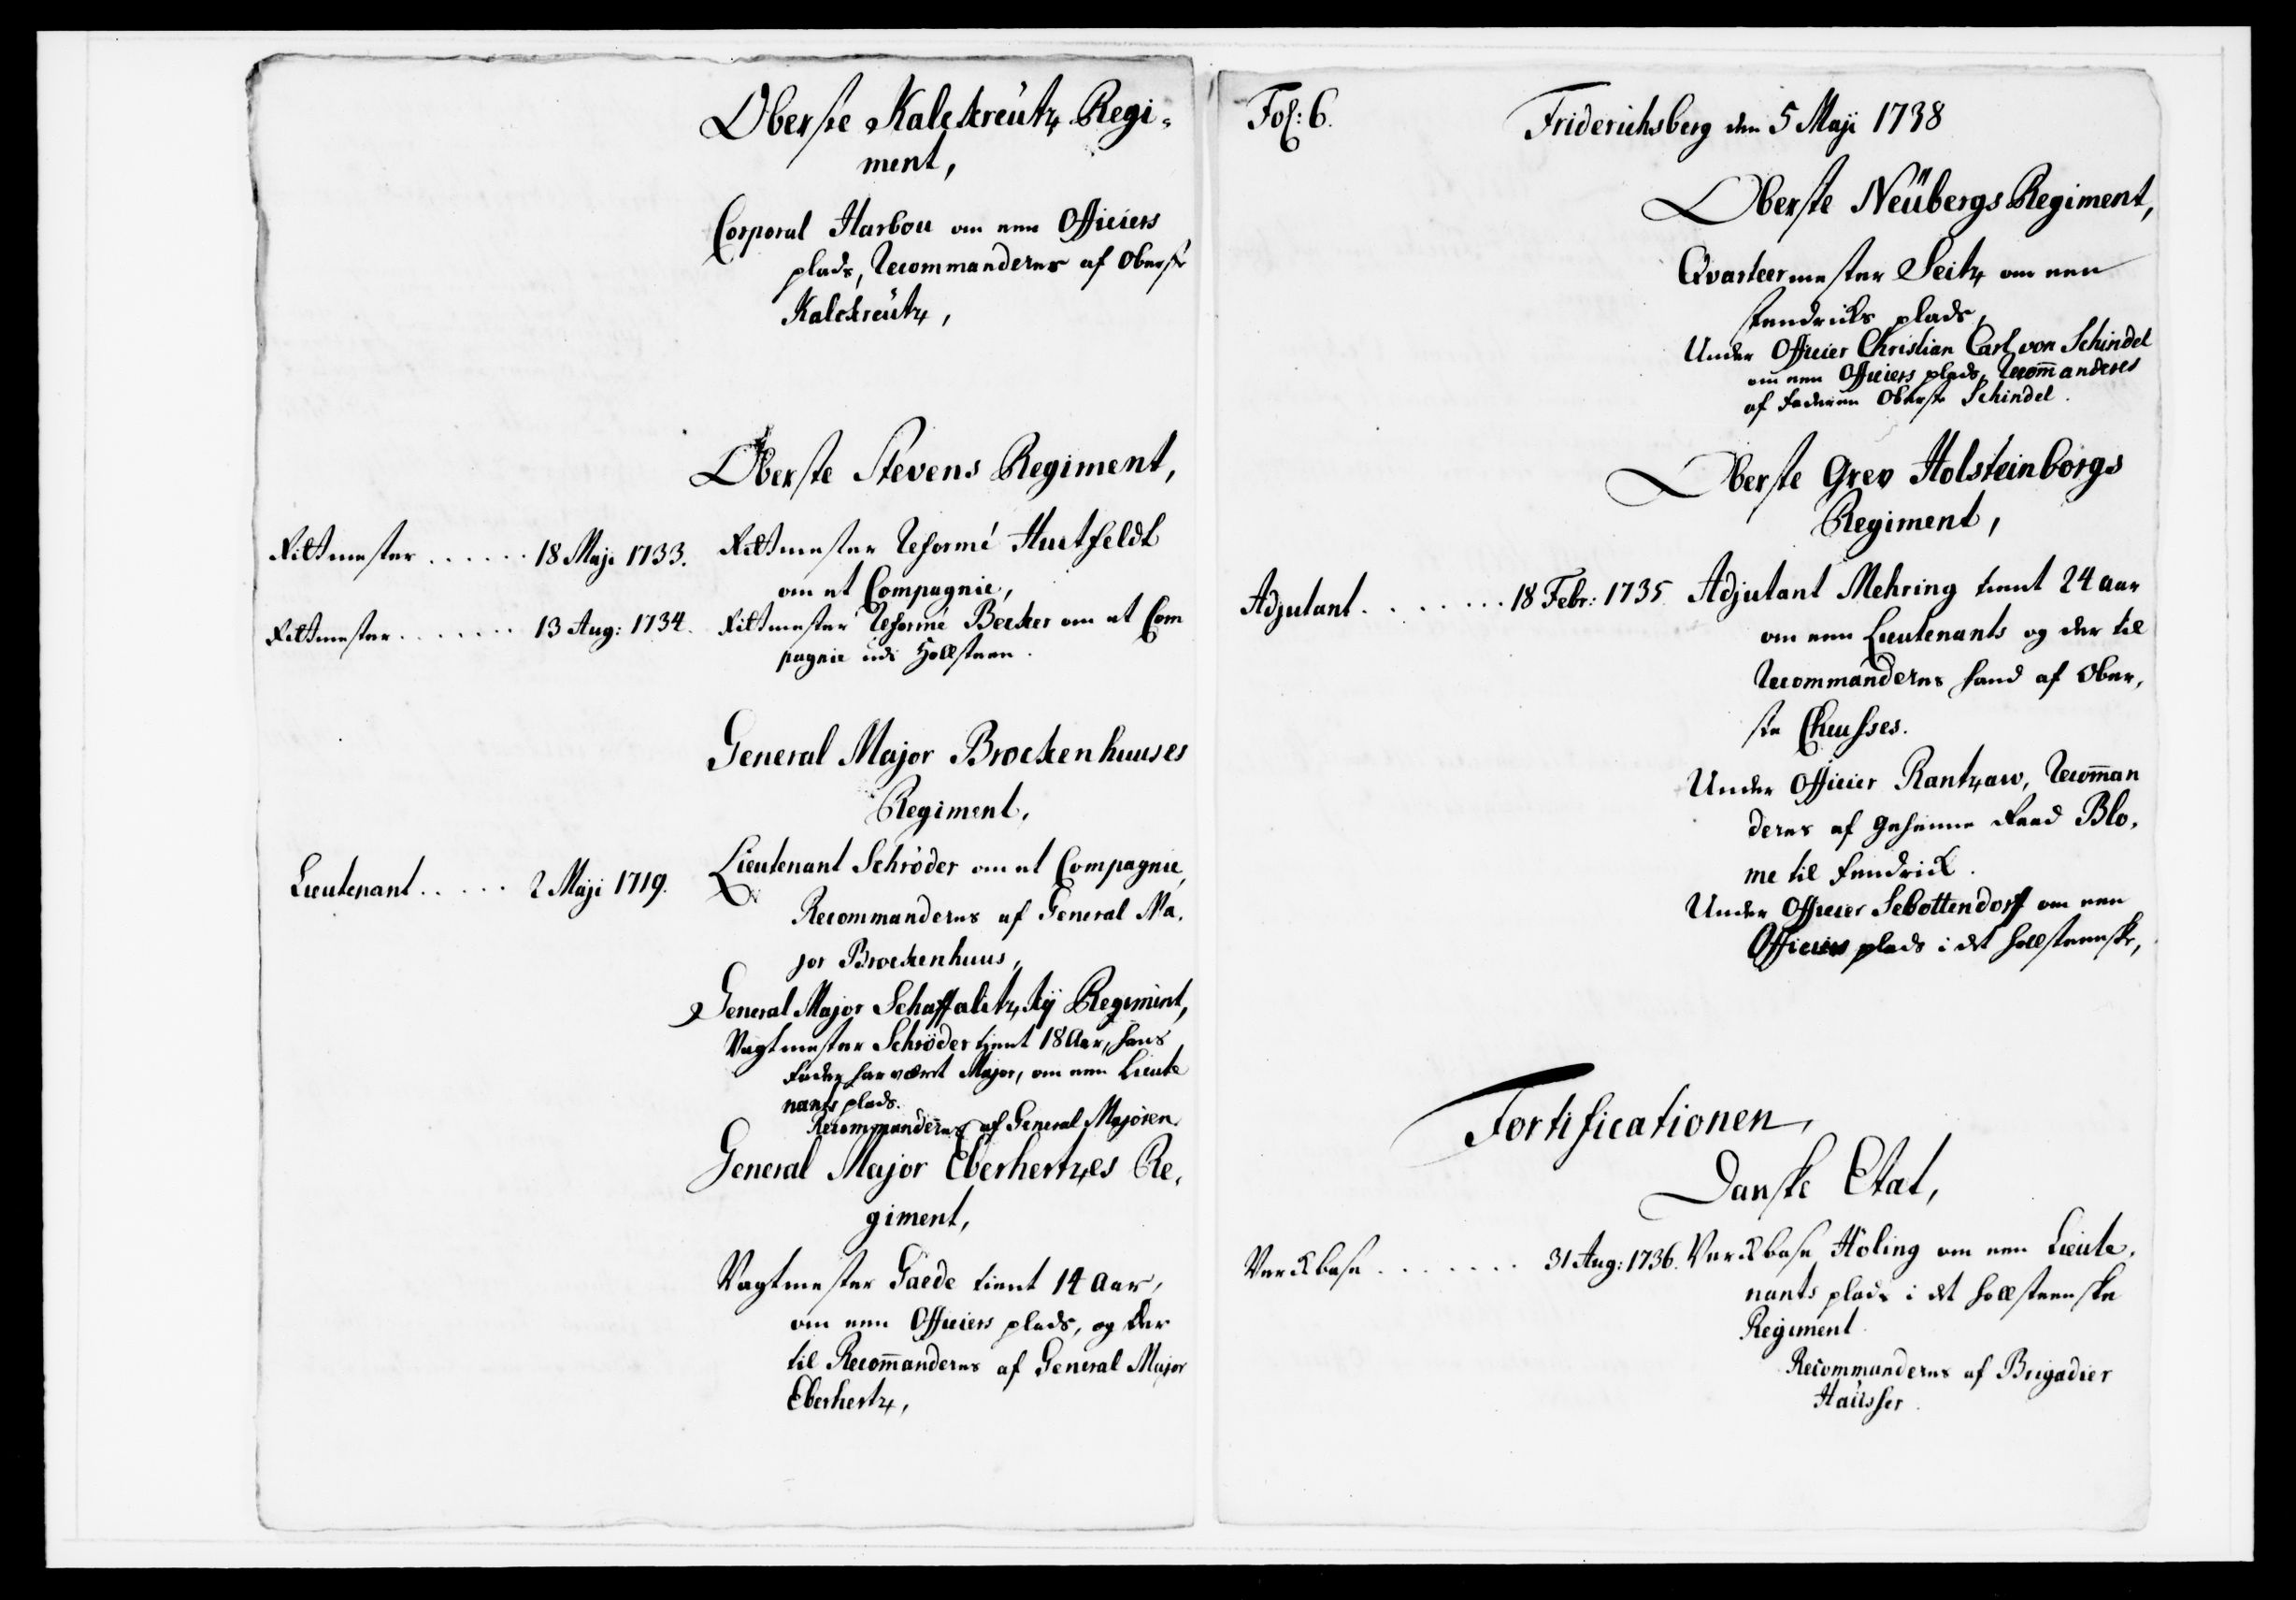 Oberste Kalckreutz Regi-
ment,
Corporal Harbou om een Officiers
plads, Recommanderes af Oberst
Kalckreutz,
Oberste Stevens Regiment,
Rittmester ...... 18 Maji 1733. Rittmester Reformé Huitfeldt
om et Compagnie,
Rittmester ....... 13 Aug: 1734. Rittmester Reformé Becker om et Com
pagnie udi Hollsteen.
General Major Brockenhuuses
Regiment,
Lieutenant ..... 2 Maji 1719. Lieutenant Schröder om et Compagnie,
Recommanderes af General Ma-
jor Brockenhuus,
General Major Schaffalitzky Regiment,
Vagtmester Schröder tient 18 Aar, hans
Fader har været Major, om een Lieute
nants plads.
Recommanderes af General Majoren
General Major Eberhertzes Re-
giment,
Vagtmester Gaede tient 14 Aar,
om een Officiers plads, og der
til Recom̄anderes af General Major
Eberhertz,
Fol: 6. Friderichsberg den 5 Maji 1738
Oberste Neübergs Regiment,
Qvarteermester Seitz om een
Fendricks plads,
Under Officier Christian Carl von Schindel
om een Officiers plads, Recom̄anderes
af Faderen Oberste Schindel.
Oberste Grev Holsteinborgs
Regiment,
Adjutant ........ 18 Febr: 1735. Adjutant Mehring tient 24 aar
om een Lieutenants og der til
Recommanderes hand af Ober-
ste Cheusses.
Under Officier Rantzaw, Recom̄an
deres af Geheime Raad Blo-
me til Fendrick.
Under Officier Sebottendorff om een
Officiers plads i det hollsteenske,
Fortificationen,
Danske Etat,
Verckbase ....... 31 Aug: 1736. Verckbase Höling om een Lieute-
nants plads i det hollsteenske
Regiment.
Recommanderes af Brigadier
Haüsser.